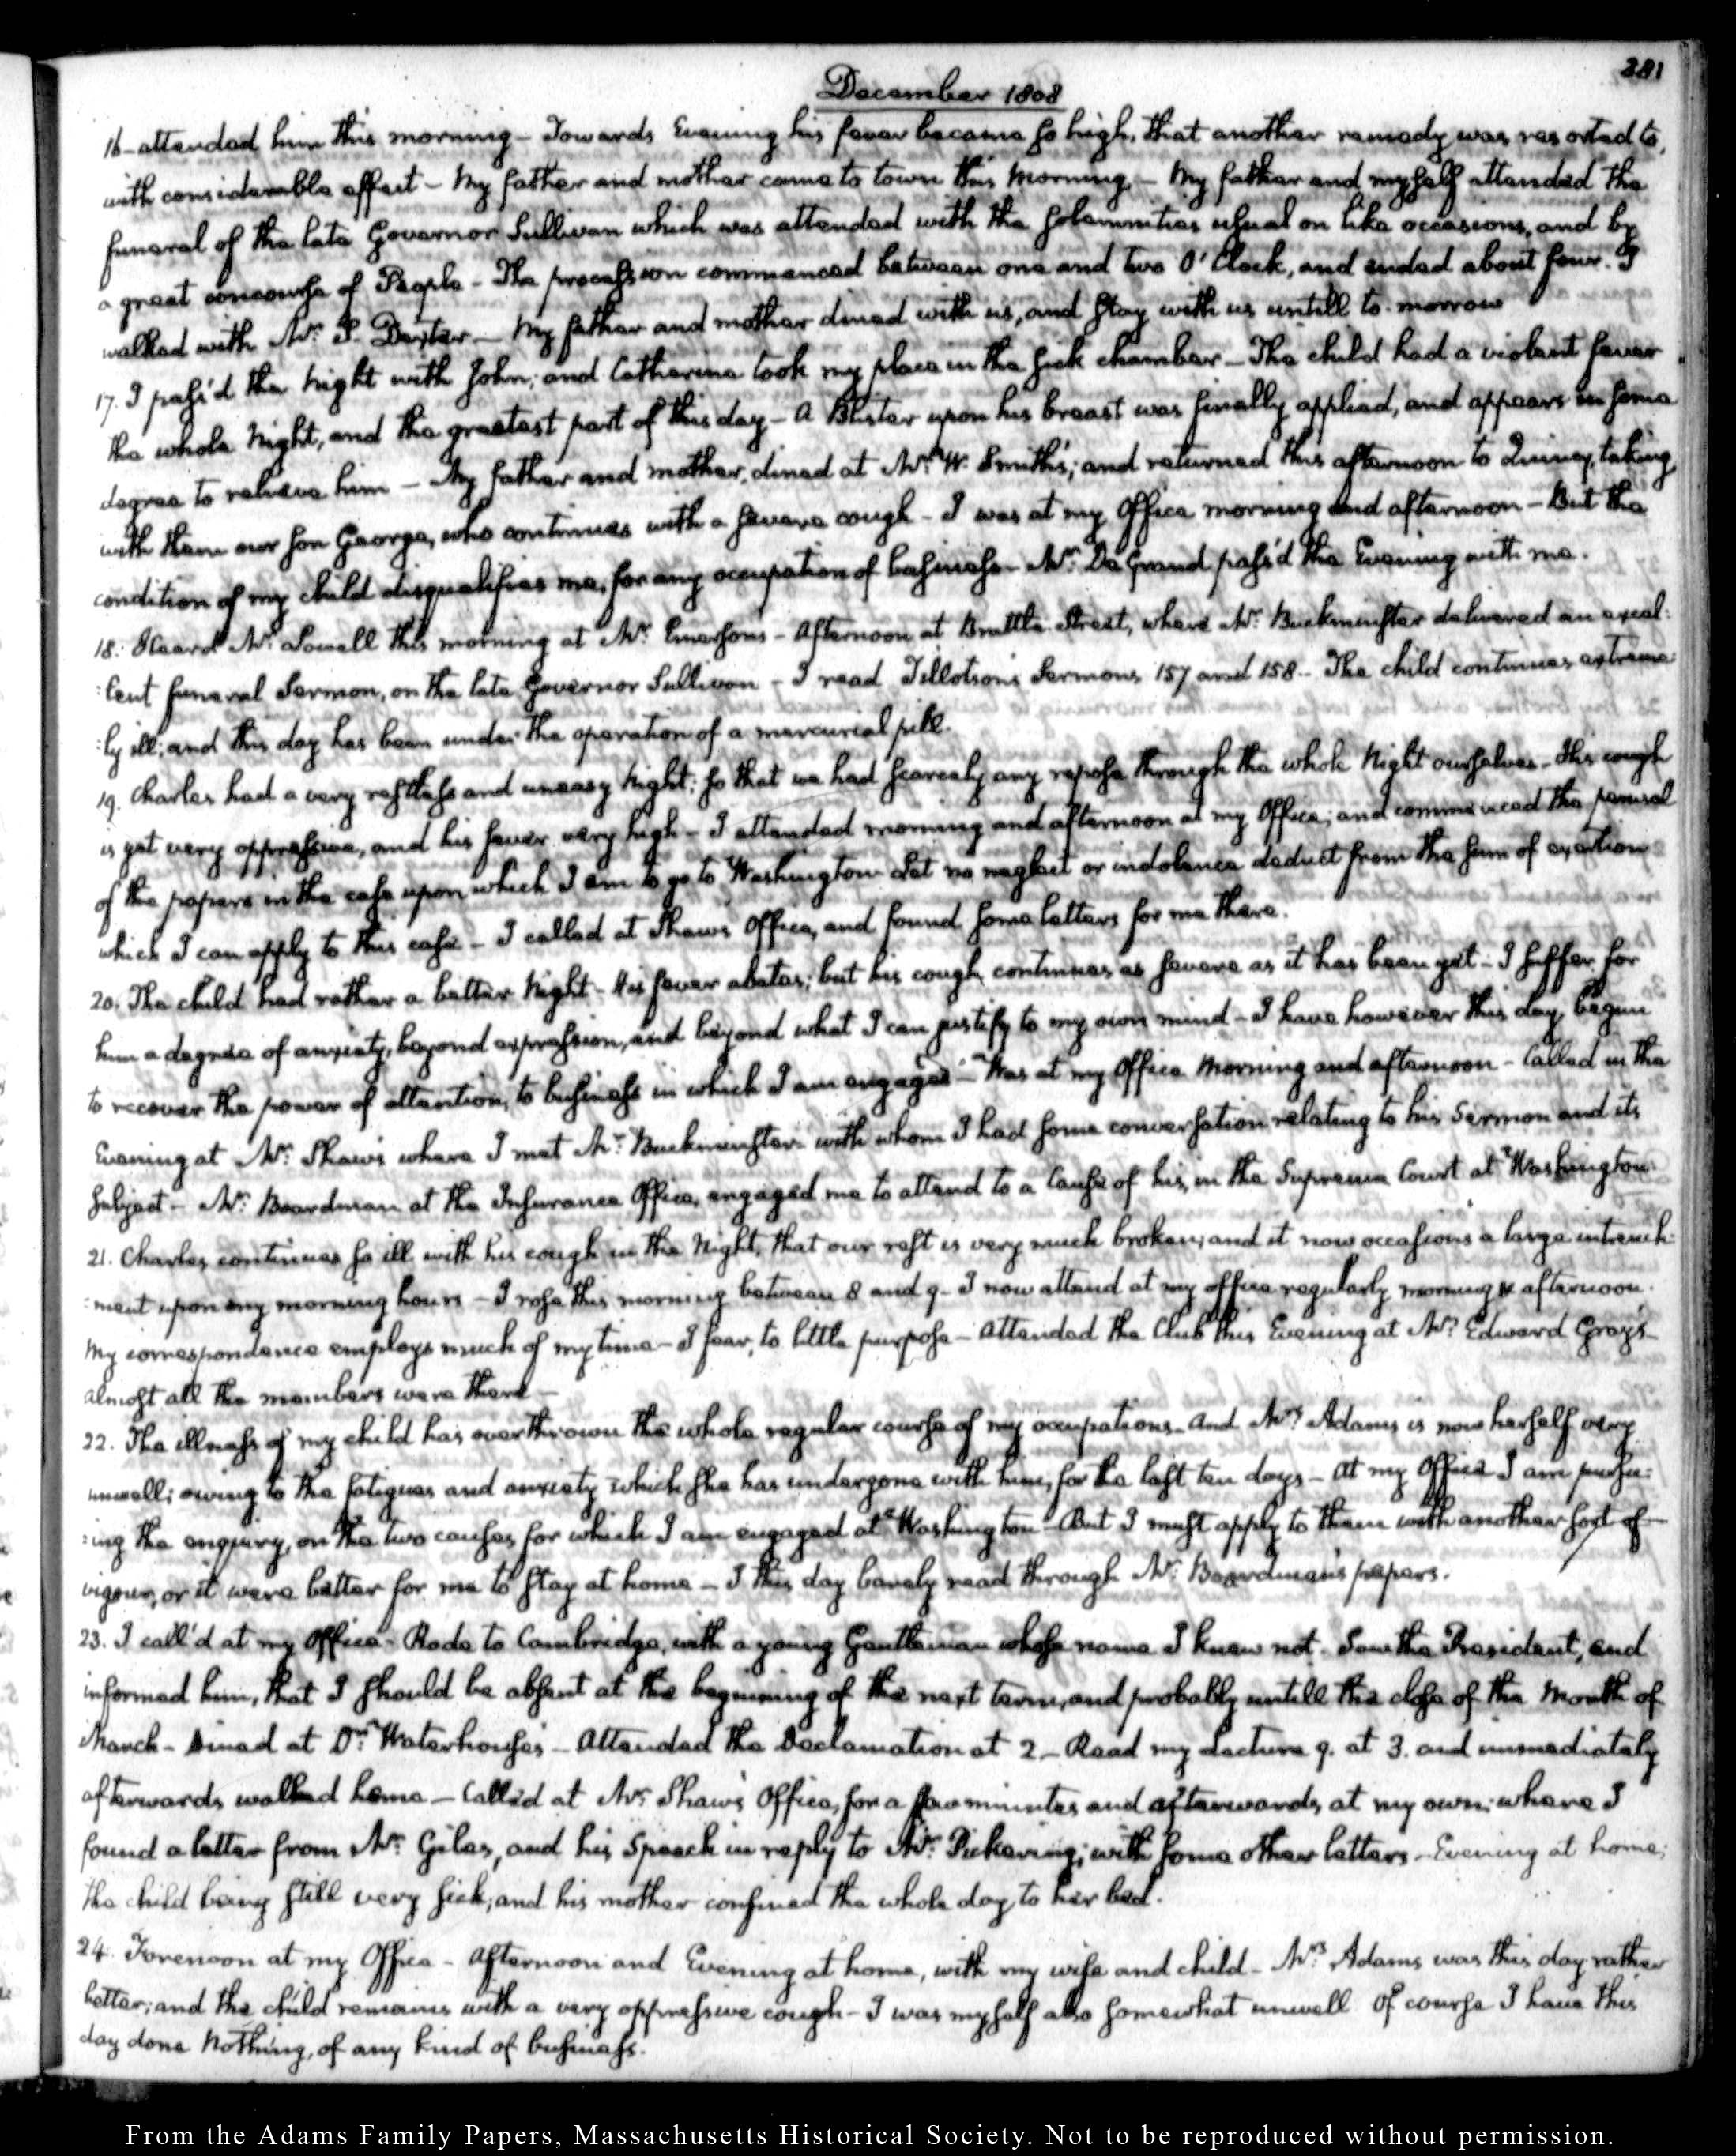 381
December 1808
16 - attended him this morning - Towards Evening his fever became so high, that another remedy was resorted to,
with considerable effect - My father and mother came to town this Morning. - My father and myself attended the
funeral of the late Governor Sullivan which was attended with the solemnities usual on like occasions, and by
a great concourse of People - The procession commenced between one and two O'Clock, and ended about four. I
walked with Mr. S. Dexter - My father and mother dined with us, and stay with us untill to-morrow
17. I pass'd the Night with John; and Catherine took my place in the sick chamber - The child had a violent fever
the whole Night, and the greatest part of this day - A Blister upon his breast was finally applied, and appears in some
degree to relieve him - My father and mother, dined at Mr. W. Smith's; and returned this afternoon to Quincy, taking
with them our son George, who continues with a severe cough - I was at my Office morning and afternoon - But the
condition of my child disqualifies me, for any occupation of business - Mr. De Grand pass'd the Evening with me.
18. Heard Mr. Lowell this morning at Mr. Emerson's - Afternoon at Brattle-Street, where Mr. Buckminster delivered an excel-
:lent funeral Sermon, on the late Governor Sullivan - I read Tillotson's Sermons 157 and 158 - The child continues extreme:
:ly ill; and this day has been under the operation of a mercurial pill.
19. Charles had a very restless and uneasy Night; so that we had scarcely any repose through the whole Night ourselves - His cough
is yet very oppressive, and his fever very high - I attended morning and afternoon at my Office; and commenced the perusal
of the papers in the case upon which I am to go to Washington. Let no neglect or indolence deduct from the sum of exertion
which I can apply to this case - I called at Shaw's Office, and found some letters for me there.
20. The child had rather a better Night - His fever abates; but his cough continues as severe as it has been yet - I suffer for
him a degree of anxiety, beyond expression, and beyond what I can justify to my own mind - I have however this day, begun
to recover the power of attention, to business in which I am engaged - Was at my Office Morning and afternoon - Called in the
Evening at Mr. Shaw's where I met Mr. Buckminster with whom I had some conversation relating to his Sermon and its
subject - Mr. Boardman at the Insurance Office, engaged me to attend to a Cause of his, in the Supreme Court at Washington.
21. Charles continues so ill with his cough in the Night, that our rest is very much broken; and it now occasions a large intrench-
:ment upon my morning hours - I rose this morning between 8 and 9 - I now attend at my office regularly morning & afternoon.
My correspondence employs much of my time - I fear, to little purpose - Attended the Club this Evening at Mr. Edward Gray's -
almost all the members were there -
22. The illness of my child has overthrown the whole regular course of my occupations. And Mrs. Adams is now herself very
unwell; owing to the fatigues and anxiety which she has undergone with him, for the last ten days - At my Office I am pursu:
:ing the enquiry, on the two causes for which I am engaged at Washington - But I must apply to them with another sort of
vigour, or it were better for me to stay at home - I this day barely read through Mr. Boardman's papers.
23. I call'd at my Office - Rode to Cambridge, with a young Gentleman whose name I knew not. Saw the President, and
informed him, that I should be absent at the beginning of the next term, and probably untill the close of the Month of
March - Dined at Dr. Waterhouse's - Attended the Declamation at 2 - Read my Lecture 9. at 3. and immediately
afterwards walked home - Call'd at Mr. Shaw's Office, for a few minutes and afterwards, at my own; where I
found a letter from Mr. Giles, and his Speech in reply to Mr. Pickering; with some other letters - Evening at home;
the child being still very sick; and his mother confined the whole day to her bed.
24. Forenoon at my Office - Afternoon and Evening at home, with my wife and child - Mrs. Adams was this day rather
better; and the child remains with a very oppressive cough - I was myself also somewhat unwell Of course I have this
day done Nothing, of any kind of business.
From the Adams Family Papers, Massachusetts Historical Society. Not to be reproduced without permission.